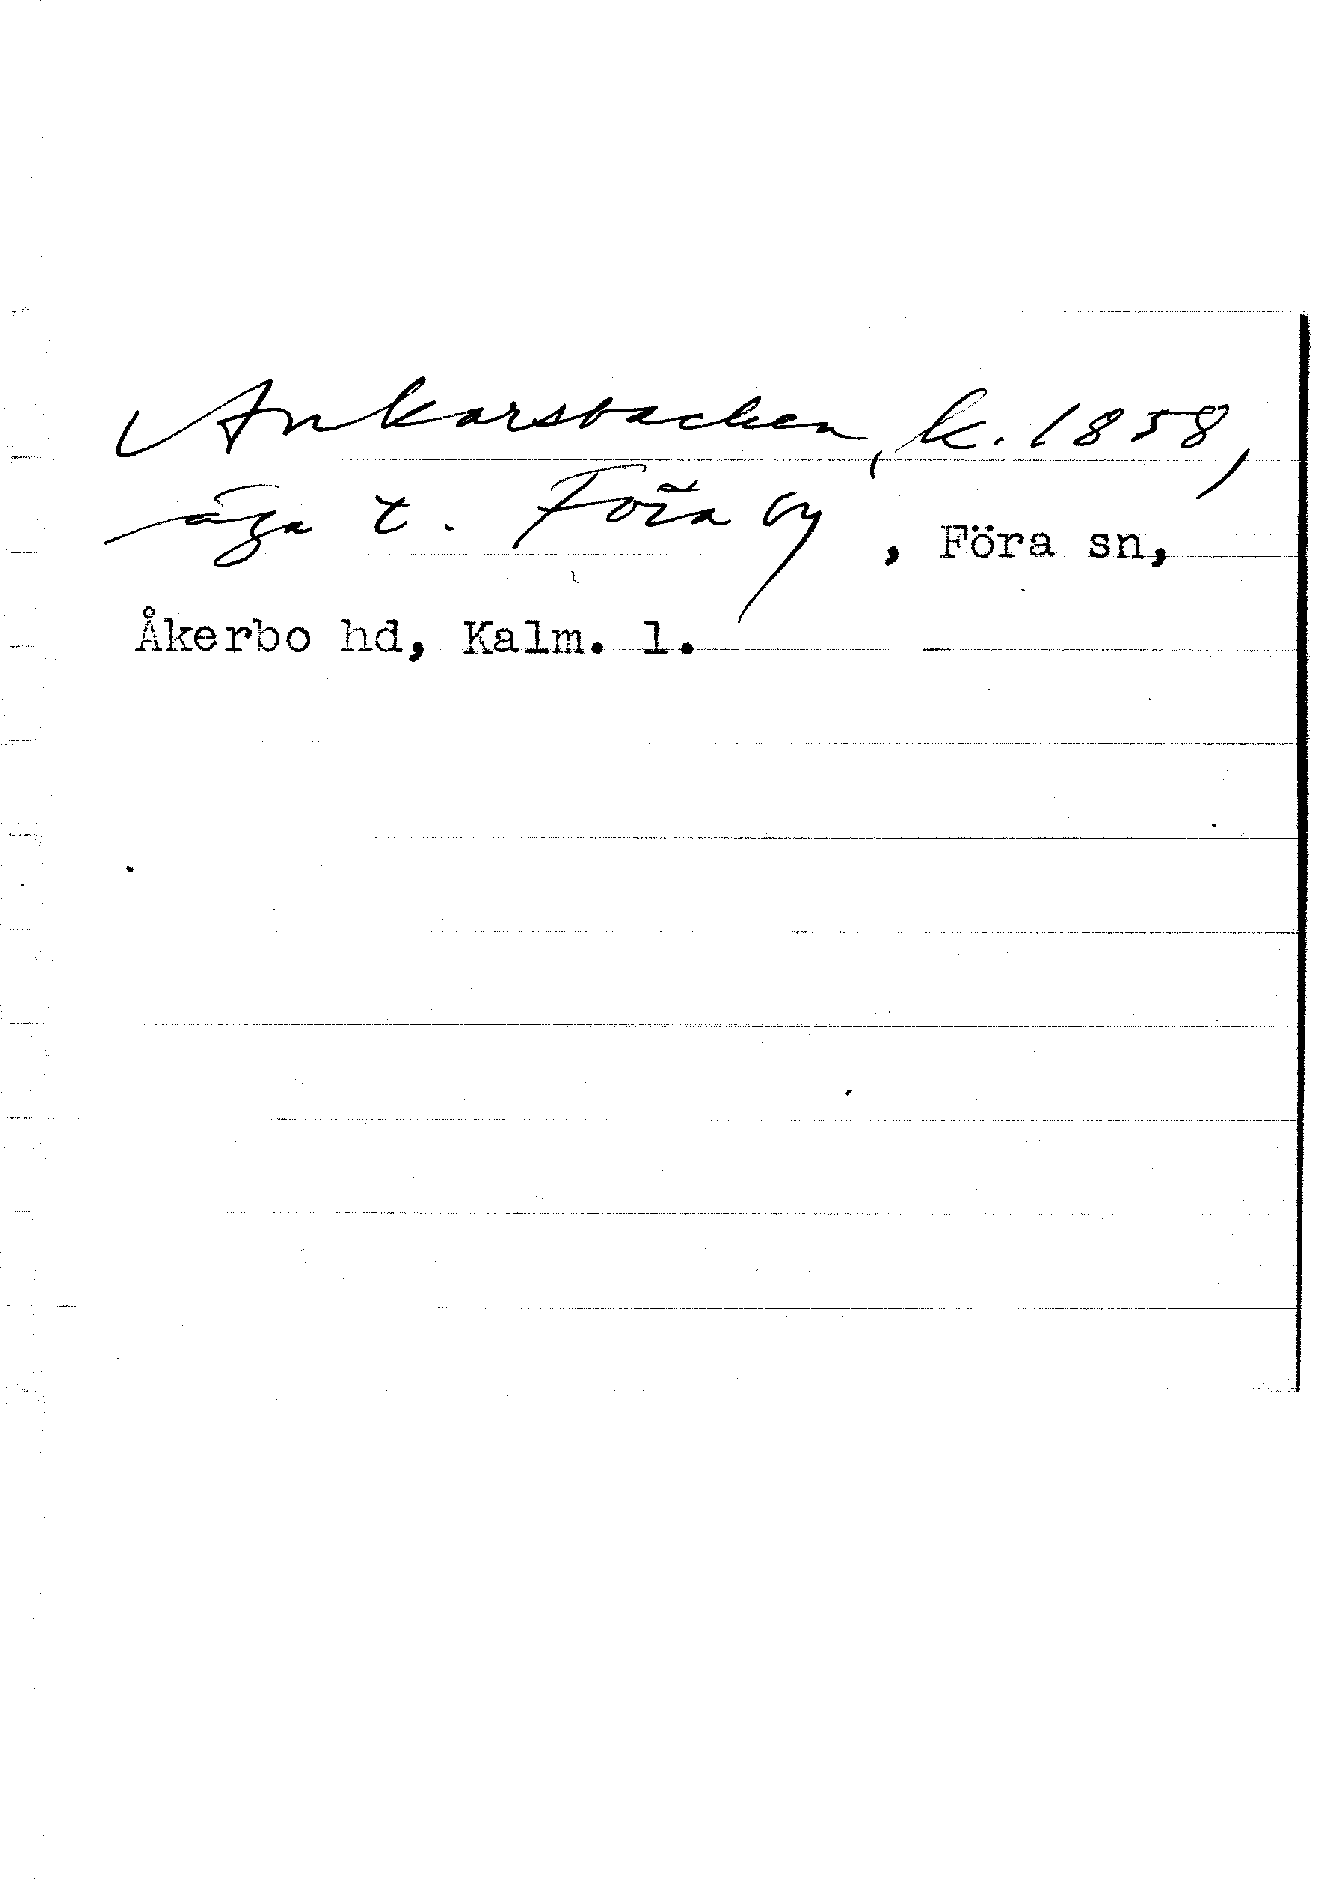 Ankarsbacken, k. 1858,
äga t. Föra by, Föra sn,
Åkerbo hd, Kalm. l.